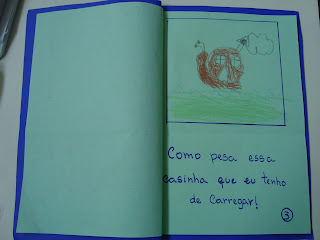 Como pesa essa
casinha que eu tenho
de Carregar!
3